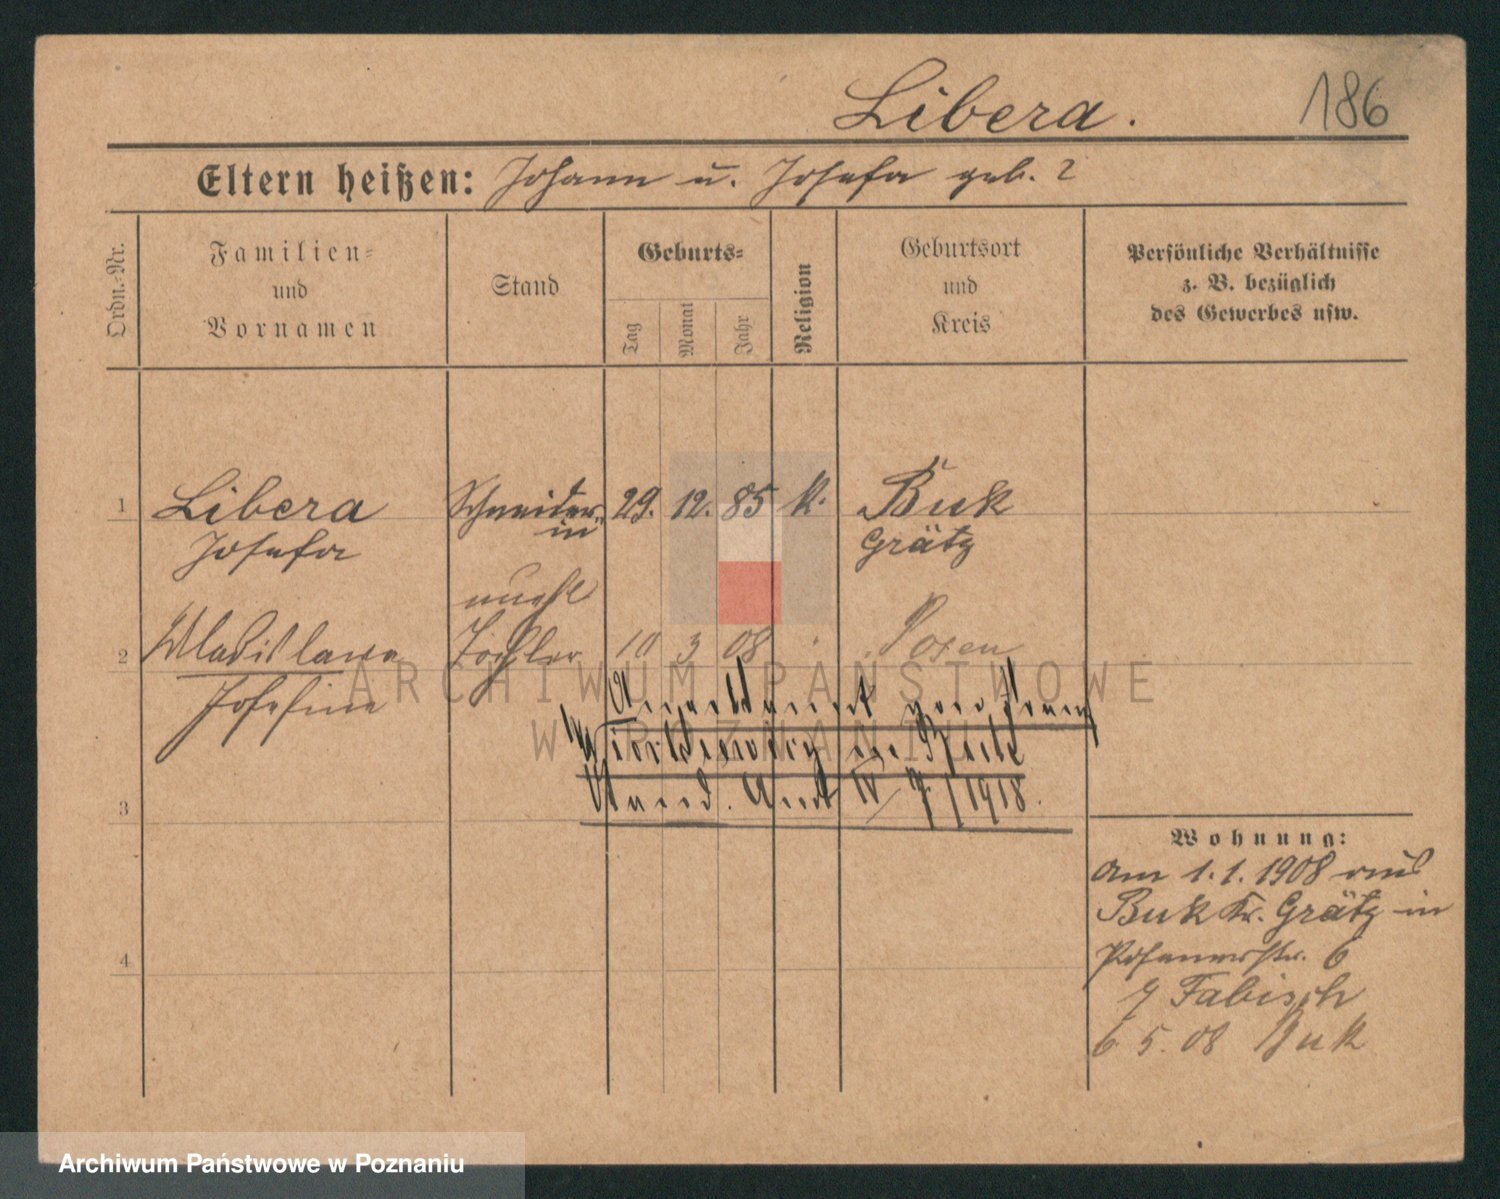 Libera.
186
Eltern heißen: Johann u. Josefa geb. ?
Ordn.-Nr.
Familien-
und
Vornamen
Stand
Geburts-
Tag
Monat
Jahr
Religion
Geburtsort
und
Kreis
Persönliche Verhältnisse
z. B. bezüglich
des Gewerbes usw.
1
Libera
Josefa
Schneider-
in
29. 12. 85
K.
Buk
Grätz
2
Wladislawa
Josefine
unehl
Tochter
10 3 08
Posen
Anerkannt von
in Buk
Stand. Amt IV 7/1918.
3
4
Wohnung:
Am 1.1.1908 aus
Buk Kr. Grätz in
Posenerstr. 6
Fabisch
6 5. 08 Buk
ARCHIWUM PAŃSTWOWE
W POZNANIU
Archiwum Państwowe w Poznaniu